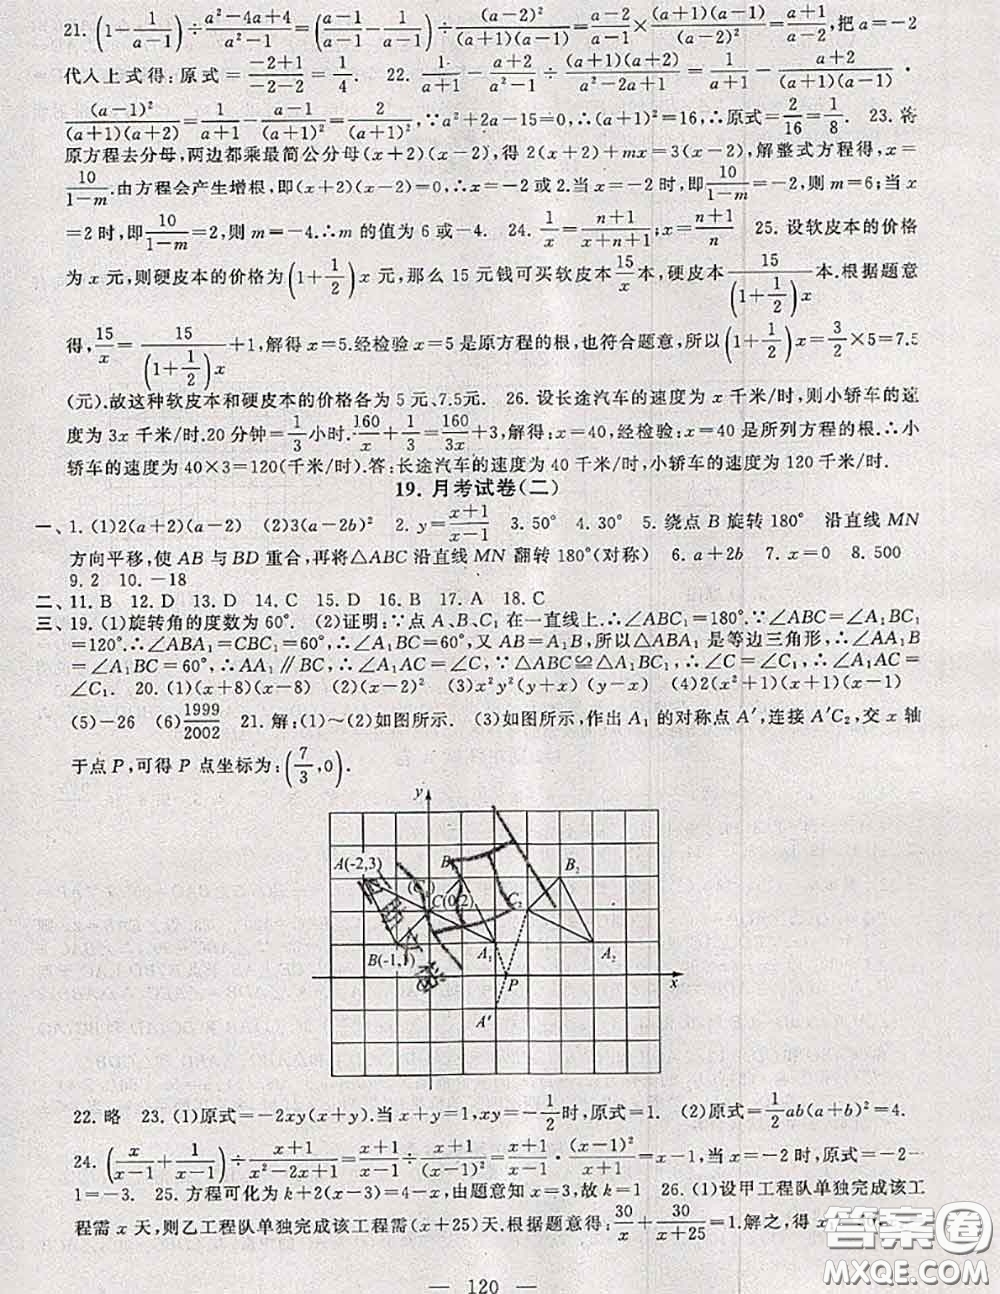 21. (1−1/(a−1))÷(a²−4a+4)/(a²−1)=((a−1)/(a−1)−1/(a−1))÷(a−2)²/((a+1)(a−1))=(a−2)/(a−1)×(a+1)(a−1)/(a−2)²=(a+1)/(a−2),把 a=−2
代人上式得:原式=(−2+1)/(−2−2)=1/4. 22. 1/(a+1)−(a+2)/(a²−1)÷(a+1)(a+2)/(a²−2a+1)=1/(a+1)−(a+2)/((a+1)(a−1))·
(a−1)²/((a+1)(a+2))=1/(a+1)−(a−1)/(a+1)²=2/(a+1)²,∵a²+2a−15=0,∴(a+1)²=16,∴原式=2/16=1/8. 23. 将
原方程去分母,两边都乘最简公分母(x+2)(x−2),得 2(x+2)+mx=3(x−2),解整式方程得,x=
10/(1−m).由方程会产生增根,即(x+2)(x−2)=0,∴x=−2或2.当x=−2时,即10/(1−m)=−2,则m=6;当x
=2时,即10/(1−m)=2,则m=−4.∴m 的值为 6 或−4. 24. 1/x=(n+1)/(x+n+1);x=(n+1)/n 25. 设软皮本的价格
为 x 元,则硬皮本的价格为(1+1/2)x 元,那么 15 元钱可买软皮本15/x本,硬皮本15/((1+1/2)x)本.根据题意
得,15/x=15/((1+1/2)x)+1,解得x=5.经检验x=5是原方程的根,也符合题意,所以(1+1/2)x=3/2×5=7.5
(元).故这种软皮本和硬皮本的价格各为5元、7.5元. 26. 设长途汽车的速度为 x 千米/时,则小轿车的速
度为3x 千米/时.20分钟=1/3小时.160/x+1/3=160/3x+3,解得:x=40,经检验:x=40是所列方程的根.∴小
轿车的速度为40×3=120(千米/时).答:长途汽车的速度为40千米/时,小轿车的速度为120千米/时.
19. 月考试卷(二)
一、1.(1)2(a+2)(a−2) (2)3(a−2b)² 2. y=(x+1)/(x−1) 3. 50° 4. 30° 5. 绕点 B 旋转180° 沿直线 MN
方向平移,使 AB 与 BD 重合,再将△ABC 沿直线 MN 翻转180°(对称) 6. a+2b 7. x=0 8. 500
9. 2 10. −18
二、11. B 12. D 13. D 14. C 15. D 16. B 17. A 18. C
三、19. (1)旋转角的度数为 60°. (2)证明:∵点 A、B、C₁ 在一直线上.∴∠ABC₁=180°.∵∠ABC=∠A₁BC₁
=120°.∴∠ABA₁=∠CBC₁=60°,∴∠A₁BC=60°,又 AB=A₁B,所以△ABA₁ 是等边三角形,∴∠AA₁B
=∠A₁BC=60°,∴AA₁∥BC,∴∠A₁AC=∠C,∵△ABC≌△A₁BC₁,∴∠C=∠C₁,∴∠A₁AC=
∠C₁. 20. (1)(x+8)(x−8) (2)(x−2)² (3)x²y²(y+x)(y−x) (4)2(x²+1)(x+1)(x−1)
(5)−26 (6)1999/2002 21. 解:(1)~(2)如图所示. (3)如图所示,作出 A₁ 的对称点 A′,连接 A′C₂,交 x 轴
于点 P,可得 P 点坐标为:(7/3,0).
y
A(-2,3) B B₂
C(0,2) C₂
B(-1,1) A₁ A₂
P x
A′
22. 略 23. (1)原式=−2xy(x+y).当 x+y=1,xy=−1/2时,原式=1. (2)原式=1/2ab(a+b)²=4.
24. (x/(x−1)+1/(x−1))÷(x+1)/(x²−2x+1)=(x+1)/(x−1)÷(x+1)/(x−1)²=(x+1)/(x−1)·(x−1)²/(x+1)=x−1,当x=−2时,原式=−2−
1=−3. 25. 方程可化为 k+2(x−3)=4−x,由题意知 x=3,故 k=1 26. (1)设甲工程队单独完成该工
程需 x 天,则乙工程队单独完成该工程需(x+25)天.根据题意得:30/x+30/(x+25)=1.解之,得 x
— 120 —
答案圈
MXQE.COM